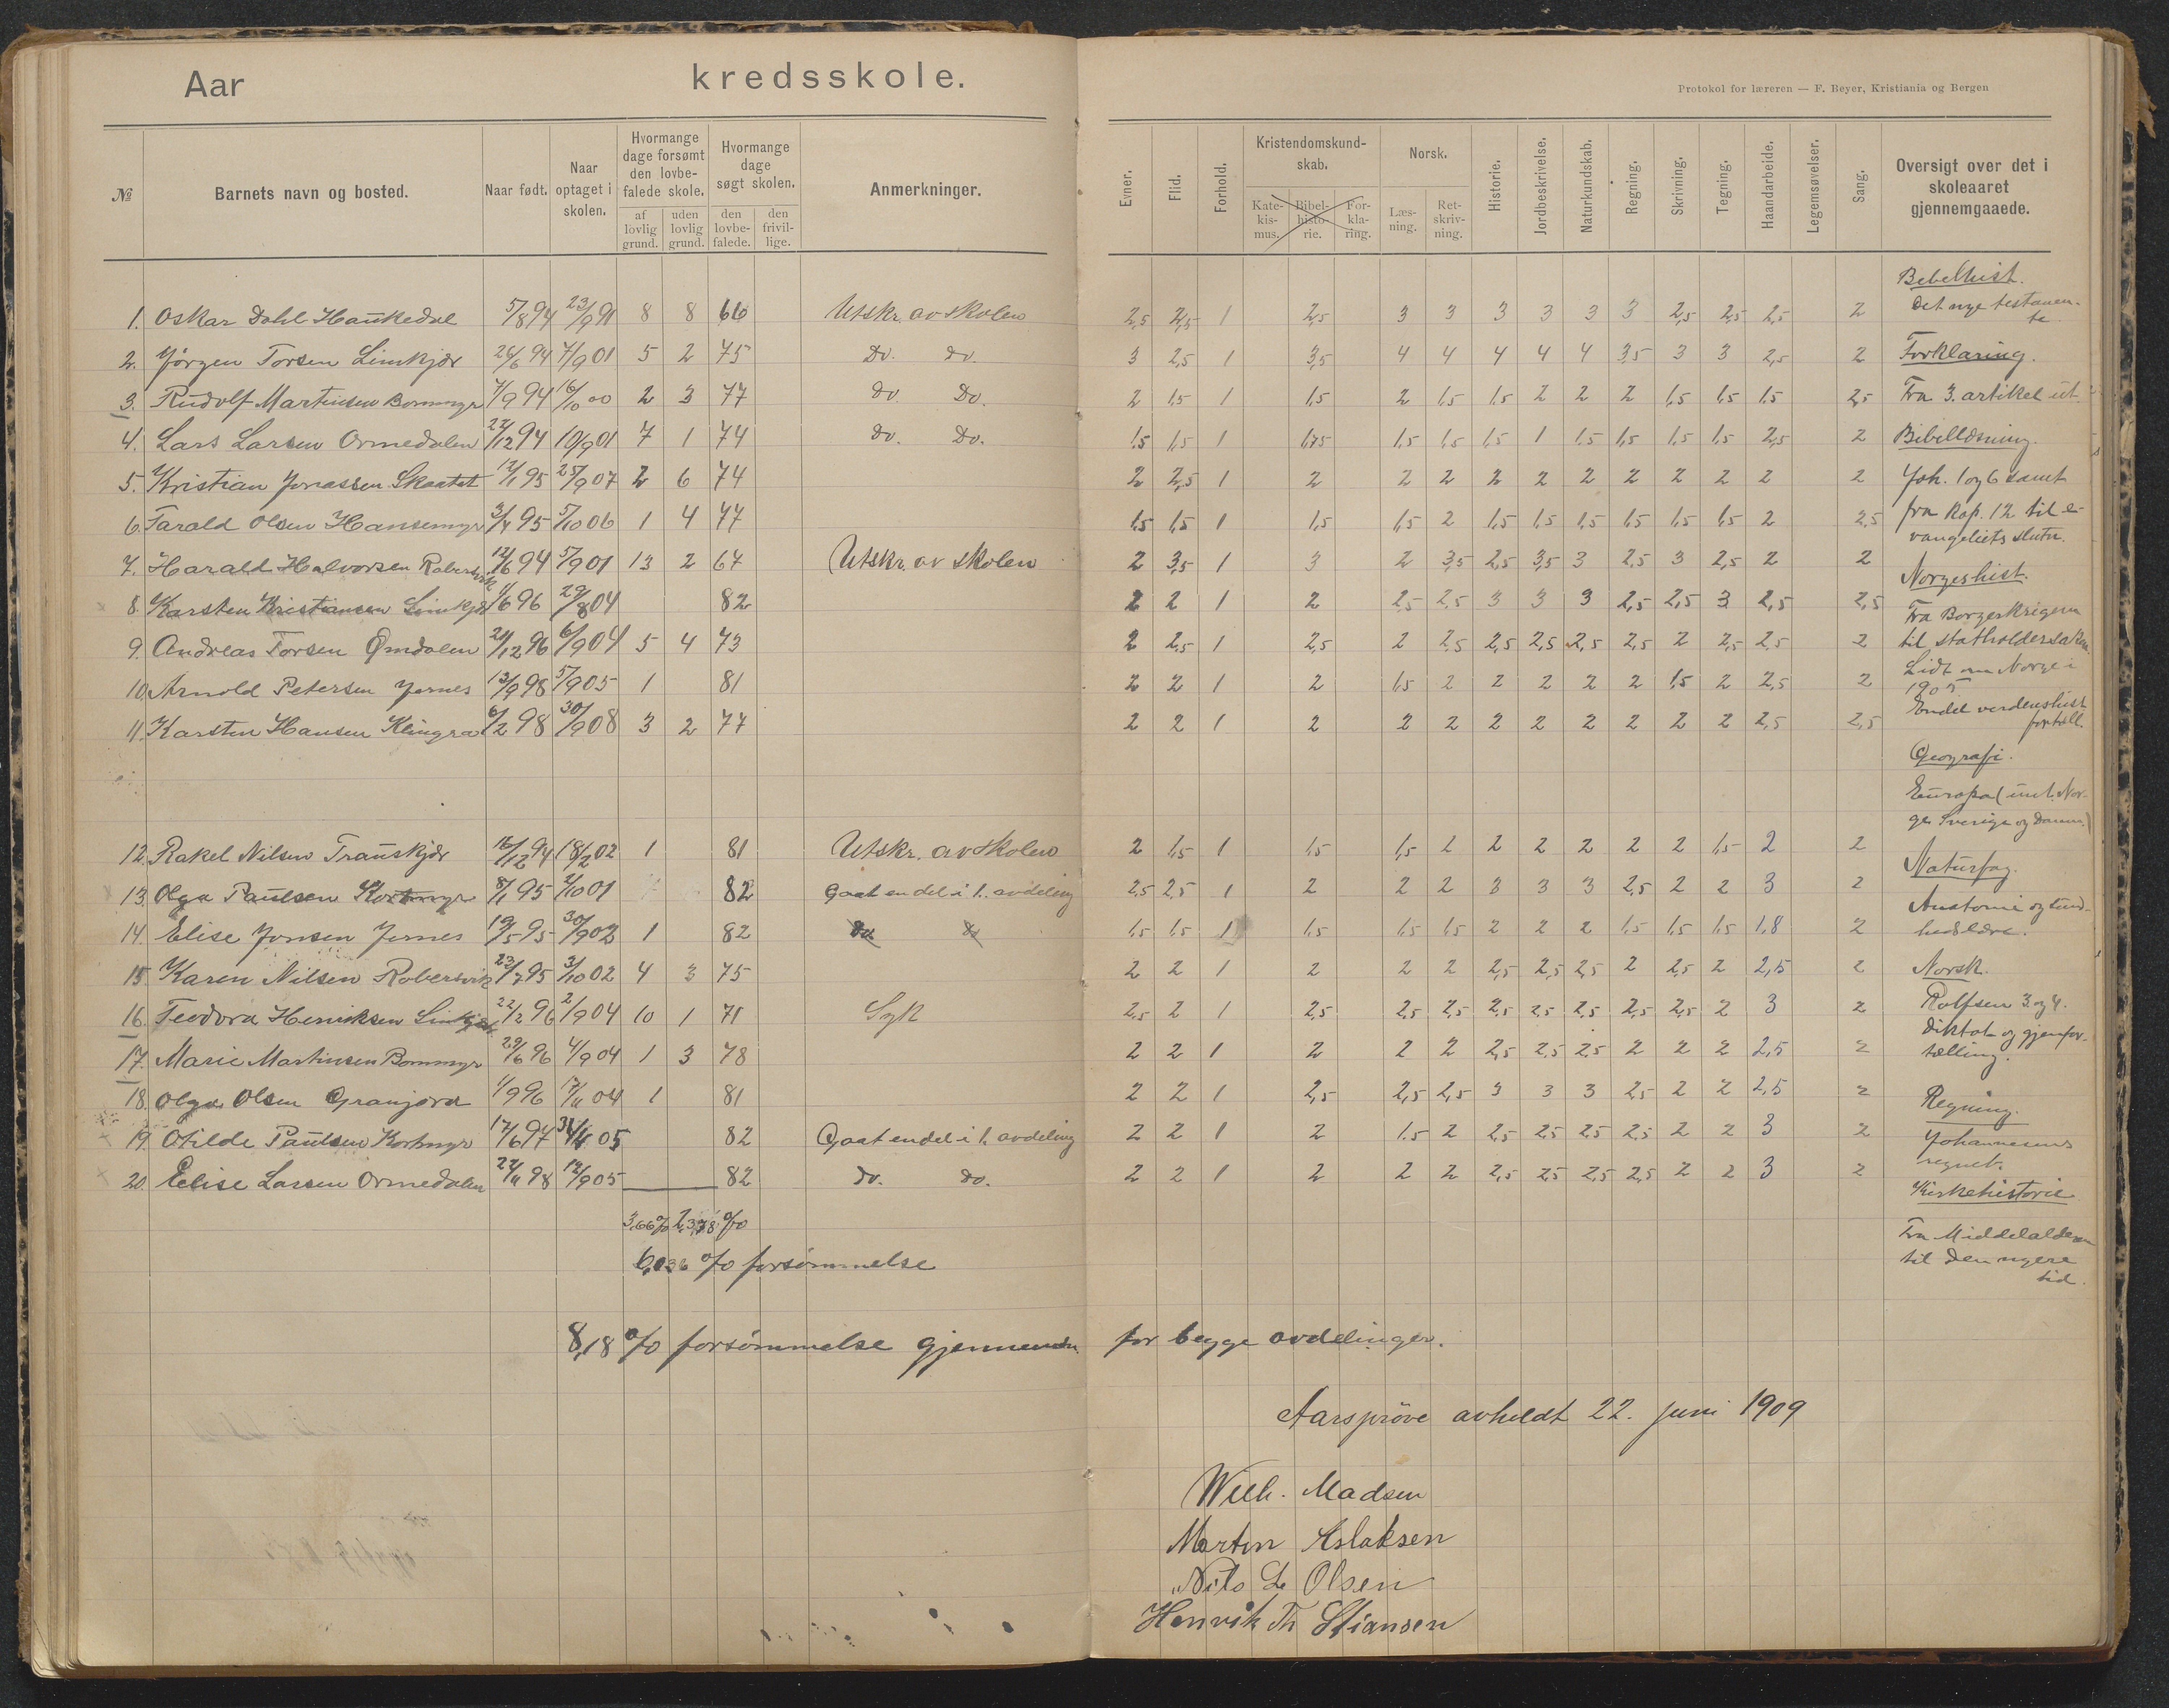 Aar kredsskole.
Protokol for læreren — F. Beyer, Kristiania og Bergen
№ Barnets navn og bosted. Naar født. Naar optaget i skolen. Hvormange dage forsømt den lovbefalede skole. af lovlig grund. uden lovlig grund. Hvormange dage søgt skolen. den lovbefalede. den frivillige. Anmerkninger.
Evner. Flid. Forhold. Kristendomskundskab. Katekismus. Bibelhistorie. Forklaring. Norsk. Læsning. Retskrivning. Historie. Jordbeskrivelse. Naturkundskab. Regning. Skrivning. Tegning. Haandarbeide. Legemsøvelser. Sang. Oversigt over det i skoleaaret gjennemgaaede.
1. Oskar Dahl Haukedal 5/8 94 23/9 91 8 8 66 Utskr. av skolen 2,5 2,5 1 2,5 3 3 3 3 3 3 2,5 2,5 2,5 2
2. Jörgen Torsen Limkjær 26/6 94 7/9 01 5 2 75 Do. do. 3 2,5 1 3,5 4 4 4 4 4 3,5 3 3 2,5 2
3. Rudolf Martinsen Bommyr 7/9 94 16/10 00 2 3 77 do Do. 2 1,5 1 1,5 2 1,5 1,5 2 2 2 1,5 1,5 1,5 2,5
4. Lars Larsen Ormedalen 27/12 94 10/9 01 7 1 74 do. Do. 1,5 1,5 1 1,75 1,5 1,5 1,5 1 1,5 1,5 1,5 1,5 2,5 2
5. Kristian Jonassen Skaatet 12/1 95 25/9 07 2 6 74 2 2,5 1 2 2 2 2 2 2 2 2 2 2 2
6. Tarald Olsen Hansemyr 3/4 95 5/10 06 1 4 77 1,5 1,5 1 1,5 1,5 2 1,5 1,5 1,5 1,5 1,5 1,5 2 2,5
7. Harald Halvorsen Robersvik 12/6 94 5/9 01 13 2 67 Utskr. av skolen 2 3,5 1 3 2 3,5 2,5 3,5 3 2,5 3 2,5 2 2
8. Karsten Kristiansen Limkjær 1/6 96 29/8 04 82 2 2 1 2 2,5 2,5 3 3 3 2,5 2,5 3 2,5 2,5
9. Andreas Torsen Ömdalen 21/12 96 6/9 04 5 4 73 2 2,5 1 2,5 2 2,5 2,5 2,5 2,5 2,5 2 2,5 2,5 2
10. Arnold Petersen Jernes 13/9 98 5/9 05 1 81 2 2 1 2 1,5 2 2 2 2 2 1,5 2 2,5 2
11. Karsten Hansen Klingra 6/2 98 30/9 08 3 2 77 2 2 1 2 2 2 2 2 2 2 2 2 2,5 2,5
12. Rakel Nilsen Trauskjær 16/12 94 18/2 02 1 81 Utskr. av skolen 2 1,5 1 1,5 1,5 2 2 2 2 2 2 1,5 2 2
13. Olga Paulsen Kortmyr 8/1 95 2/10 01 82 Gaat en del i 1. avdeling 2,5 2,5 1 2 2 2 3 3 3 2,5 2 2 3 2
14. Elise Jonsen Jernes 19/5 95 30/9 02 1 82 do. do 1,5 1,5 1 1,5 1,5 1,5 2 2 2 1,5 1,5 1,5 1,8 2
15. Karen Nilsen Robersvik 23/7 95 3/10 02 4 3 75 2 2 1 2 2 2 2,5 2,5 2,5 2 2,5 2 2,5 2
16. Teodora Henriksen Limkjær 22/2 96 2/9 04 10 1 71 Syk 2,5 2 1 2,5 2,5 2,5 2,5 2,5 2,5 2,5 2,5 2 3 2
17. Marie Martinsen Bommyr 29/6 96 4/9 04 1 3 78 2 2 1 2 2 2 2,5 2,5 2,5 2 2 2 2,5 2
18. Olga Olsen Granjora 1/9 96 17/11 04 1 81 2 2 1 2,5 2,5 2,5 3 3 3 2,5 2 2 2,5 2
19. Otilde Paulsen Kortmyr 17/6 97 05 82 Gaat en del i 1. avdeling 2 2 1 2 1.5 2 2,5 2,5 2,5 2,5 2 2 3 2
20. Elise Larsen Ormedalen 27/11 98 12/9 05 82 do. do. 2 2 1 2 2 2 2,5 2,5 2,5 2,5 2 2 3 2
Bibelhist.
Det nye testamente
Forklaring.
Fra 3. artikel ut.
Bibellæsning.
Joh. 1 og 6 samt
fra kap. 12 til e-
vangeliets slutn.
Norgeshist.
Fra Borgerkrigene
til statholdersaken.
Lidt om Norge i
1905
Endel verdenshist.
fortæll.
Geografi.
Europa (undt. Nor-
ge Sverige og Danm.)
Naturfag.
Anatomi og sund-
hedslære.
Norsk.
Rolfsen 3 og 4.
diktat og gjenfor-
tælling.
Regning.
Johannesens
regnet.
Kirkehistorie
Fra Middelalderen
til den nyere
tid.
3,66 % 2,378 %
6,036 % forsömmelse
8,18 % forsömmelse gjennemsn. for begge avdelinger.
Aarspröve avholdt 22. juni 1909
Wilh. Madsen
Martin Aslaksen
Nils L Olsen
Henrik Th Stiansen